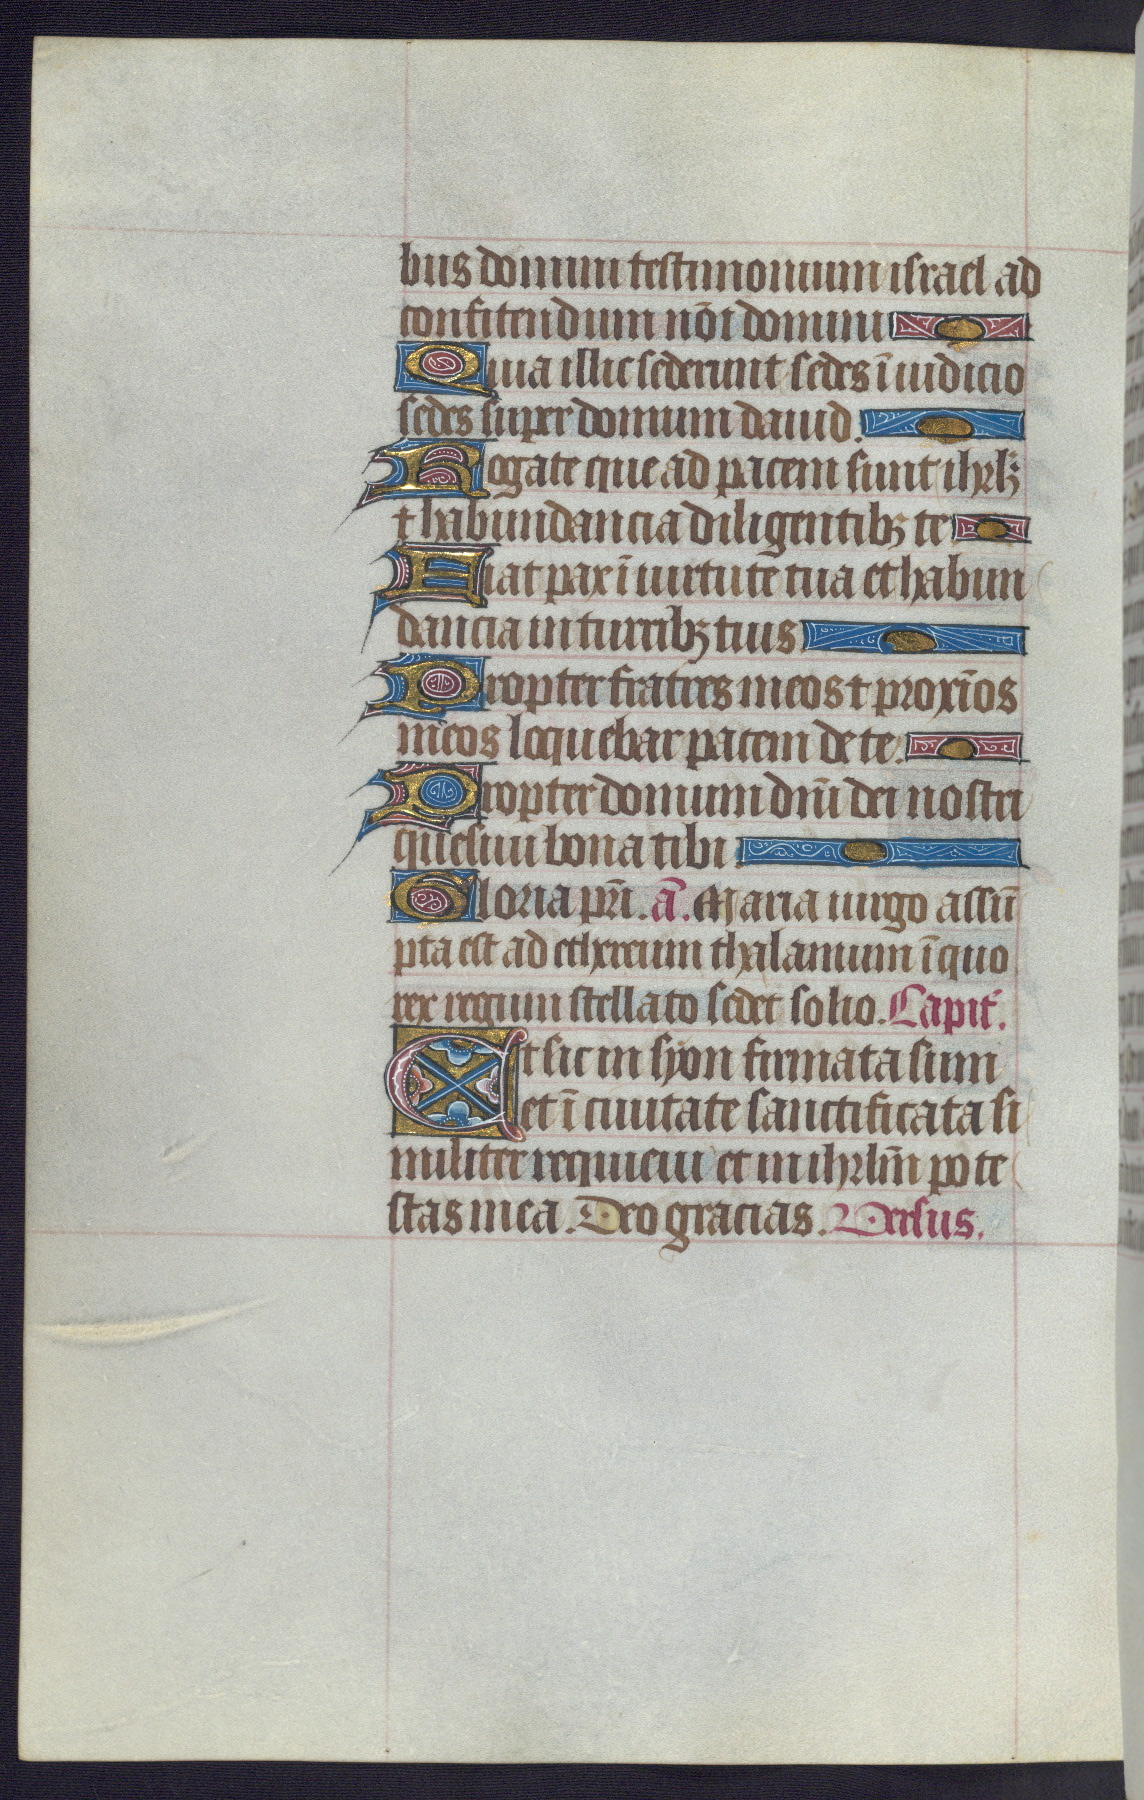 bus domini testimonium israel ad
confitendum nōi domini
Quia illic sederunt sedes ī iudicio
sedes super domum dauid.
Rogate que ad pacem sunt ihrlꝫ
⁊ habundancia diligentibꝫ te
Fiat pax ī uirtute tua et habun
dancia in turribꝫ tuis
Propter fratres meos ⁊ proxīos
meos loquebar pacem de te.
Propter domum dn̄i dei nostri
quesiui bona tibi.
Gloria pr̄i. ā. Maria uirgo assū
pta est ad ethereum thalamum ī quo
rex regum stellato sedet solio. Capit̄.
Et sic in syon firmata sum
et ī ciuitate sanctificata si
militer requieui et in ihrlm̄ pote
stas mea. Deo gracias. Versus.